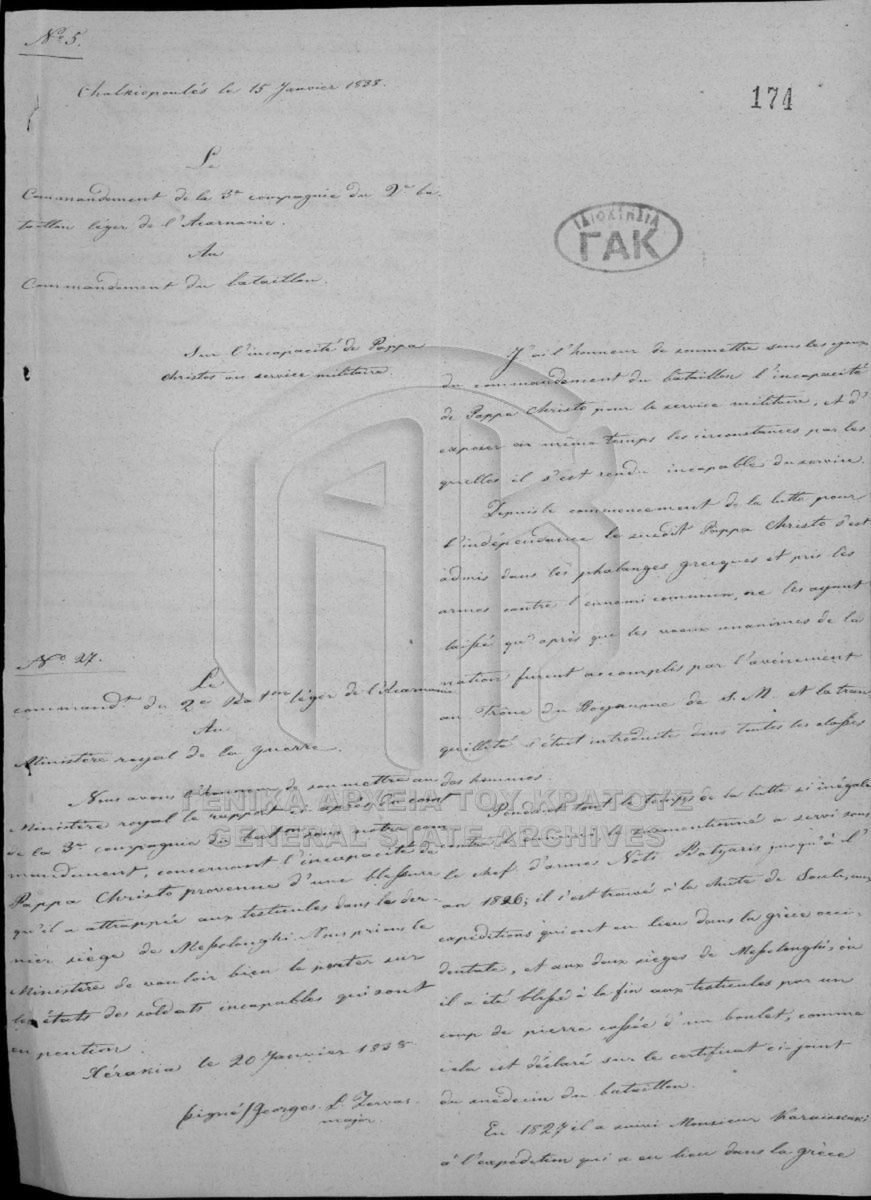 No 5.
Chalkiopoulés le 15 Janvier 1838.
174
Le
Commandement de la 3e compagnie du 2e ba-
taillon léger de l'Acarnanie.
Au
Commandement du bataillon.
ΙΔΙΟΚΤΗΣΙΑ
ΓΑΚ
Sur l'incapacité de Pappa
Christos au service militaire.
J'ai l'honneur de soumettre sous les yeux
du commandement du bataillon l'incapacité
de Pappa Christo pour le service militaire, et d'
exposer en même temps les circonstances par les
quelles il s'est rendu incapable du service.
Depuis le commencement de la lutte pour
l'indépendance le susdit Pappa Christo s'est
admis dans les phalanges grecques et pris les
armes contre l'ennemi commun, ne les ayant
laissé qu'après que les voeux unanimes de la
nation furent accomplis par l'avénement
au Trône du Royaume de S. M. et la tran
quillité s'était introduite dans toutes les classes
des hommes.
Pendant tout le temps de la lutte si inégale
le susmentionné a servi sous
le chef d'armes Noti Botzaris jusqu'à l'
an 1826; il s'est trouvé à la chute de Souli, aux
expéditions qui ont eu lieu dans la grèce occi-
dentale, et aux deux sièges de Messolonghi, où
il a été blessé à la fin aux testicules par un
coup de pierre cassée d'un boulet, comme
cela est déclaré sur le certificat ci-joint
du médecin du bataillon.
En 1827 il a suivi Monsieur Karaiskaki
à l'expédition qui a eu lieu dans la grèce
No 27.
Le
commandt du 2e Batton léger de l'Acarnanie
Au
Ministère royal de la guerre.
Nous avons l'honneur de soumettre au
Ministère royal le rapport ci après du comt
de la 3e compagnie du batton sous notre com
mandement, concernant l'incapacité de
Pappa Christo provenue d'une blessure
qu'il a attrappée aux testicules dans le der-
nier siège de Messolonghi. Nous prions le
Ministère de vouloir bien le porter sur
les états des soldats incapables qui sont
en pention.
Xérakia le 20 Janvier 1838
signé/ Georges L. Zervas
major.
ΓΕΝΙΚΑ ΑΡΧΕΙΑ ΤΟΥ ΚΡΑΤΟΥΣ
GENERAL STATE ARCHIVES